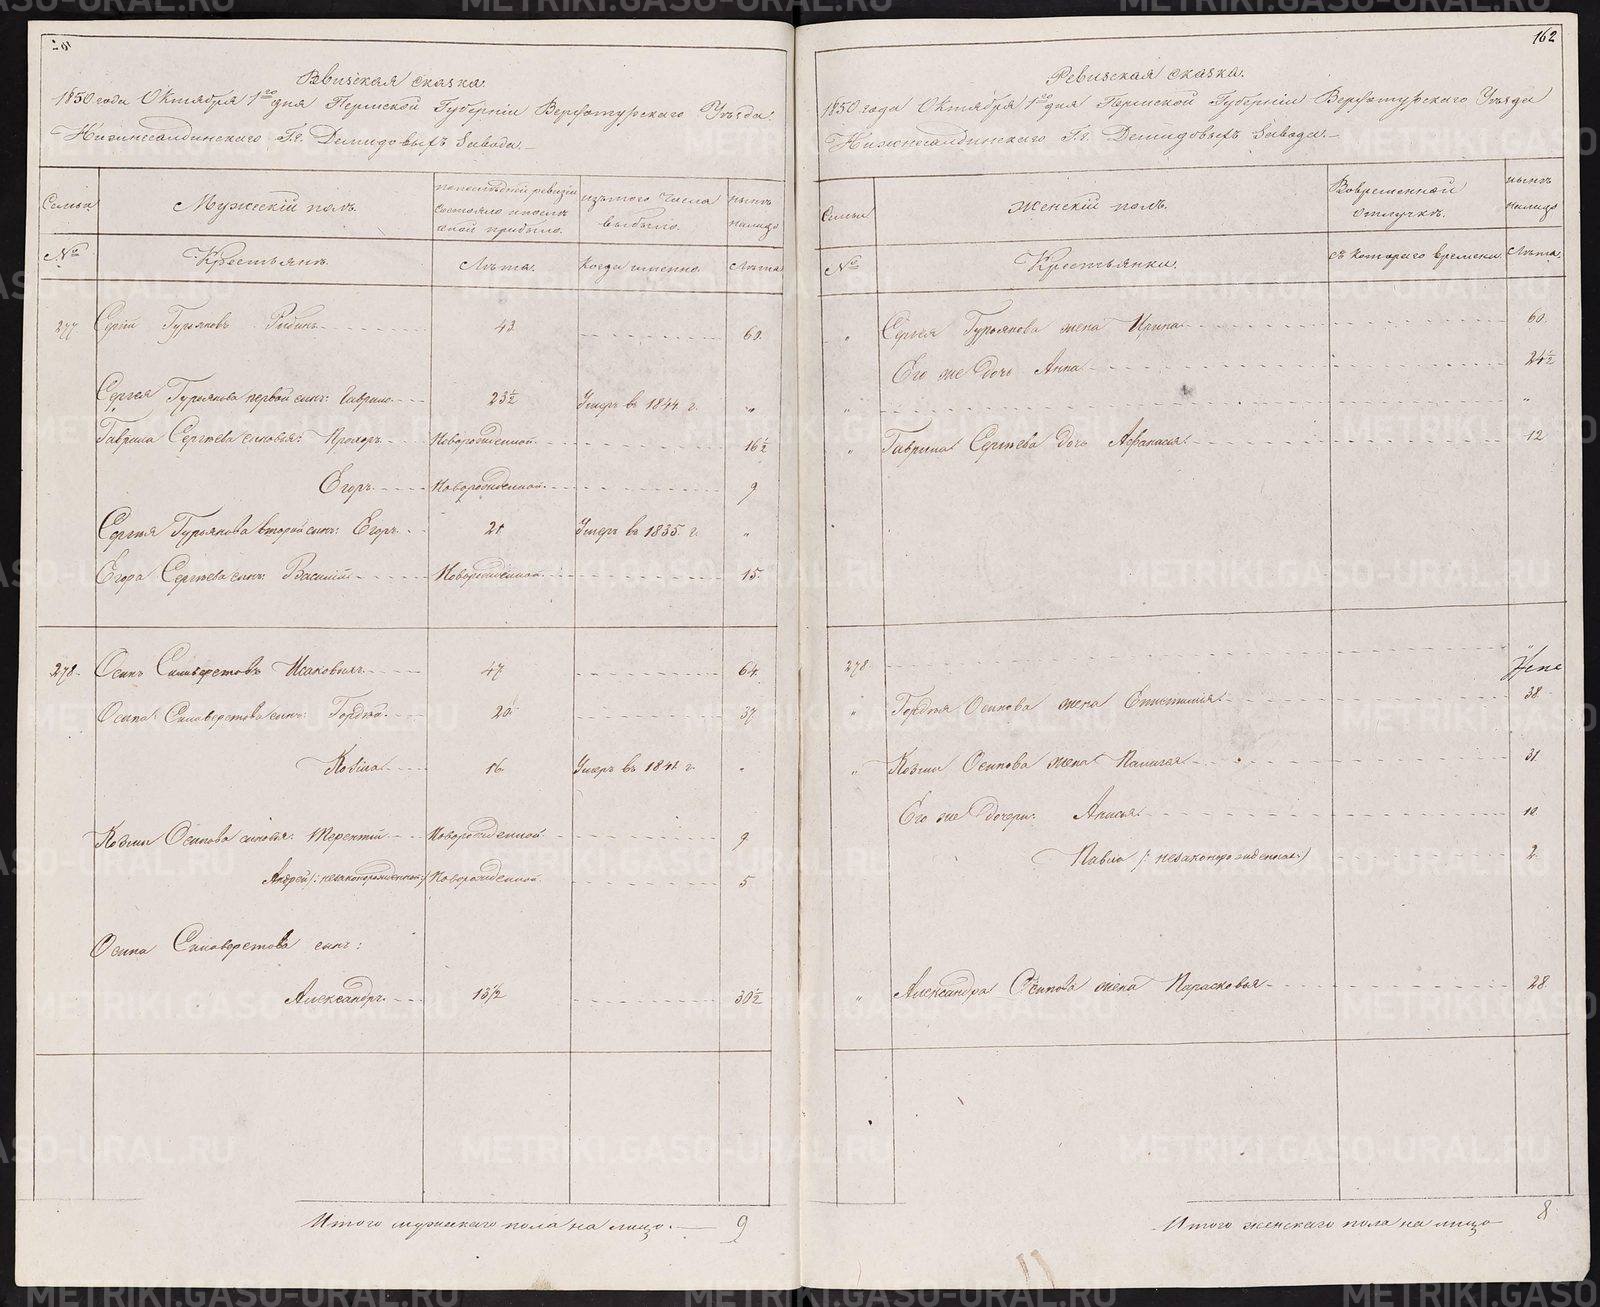 162
Ревизская сказка.
1850 года Октября 1го дня Пермской Губерніи Верхотурскаго Уѣзда
Нижнесалдинскаго Г.г. Демидовыхъ Завода.
Семьи
Мужескій полъ.
по последней ревизіи состояло и после оной прибыло.
изъ того числа выбыло.
ныне налицо
№
Крестьяне.
Лѣта.
Когда именно.
Лѣта
277.
Сергей Гурьяновъ
43
60.
Сергея Гурьянова первой сынъ: Гаврило
23½
Умеръ въ 1844 г.
"
Гаврила Сергѣева сыновья: Прохоръ
Новорожденной
16½
Егоръ
Новорожденной
9
Сергѣя Гурьянова второй сынъ: Егоръ
21
Умеръ въ 1835 г.
"
Егора Сергѣева сынъ: Василій
Новорожденной
15.
278.
Осипъ Сильверстовъ Исаковыхъ
47
64.
Осипа Сильверстова сынъ: Гордѣй
20
37.
Козма
16
Умеръ въ 1841 г.
"
Козмы Осипова сыновья: Терентій
Новорожденной
9
Андрей /: незаконорожденной :/
Новорожденной
5
Осипа Сильверстова сынъ:
Александръ
13½
30½
Итого мужескаго пола на лицо.
9
162
Ревизская сказка.
1850 года Октября 1го дня Пермской Губерніи Верхотурскаго Уѣзда
Нижнесалдинскаго Г.г. Демидовыхъ Завода.
Семьи
Женскій полъ.
Во временной отлучке.
ныне налицо
№
Крестьянки.
съ котораго времени
Лѣта.
"
Сергея Гурьянова жена Ирина
60.
Его же дочь Анна
24½
"
"
"
Гаврила Сергѣева дочь Афанасья
12
278
"
"
Гордѣя Осипова жена Епистимія
38.
"
Козмы Осипова жена Палагея
31.
Его же дочери: Анисья
10.
Павла /: незаконорожденная :/
2.
"
Александра Осипова жена Парасковья
28.
Итого женскаго пола на лицо
8
METRIKI.GASO-URAL.RU